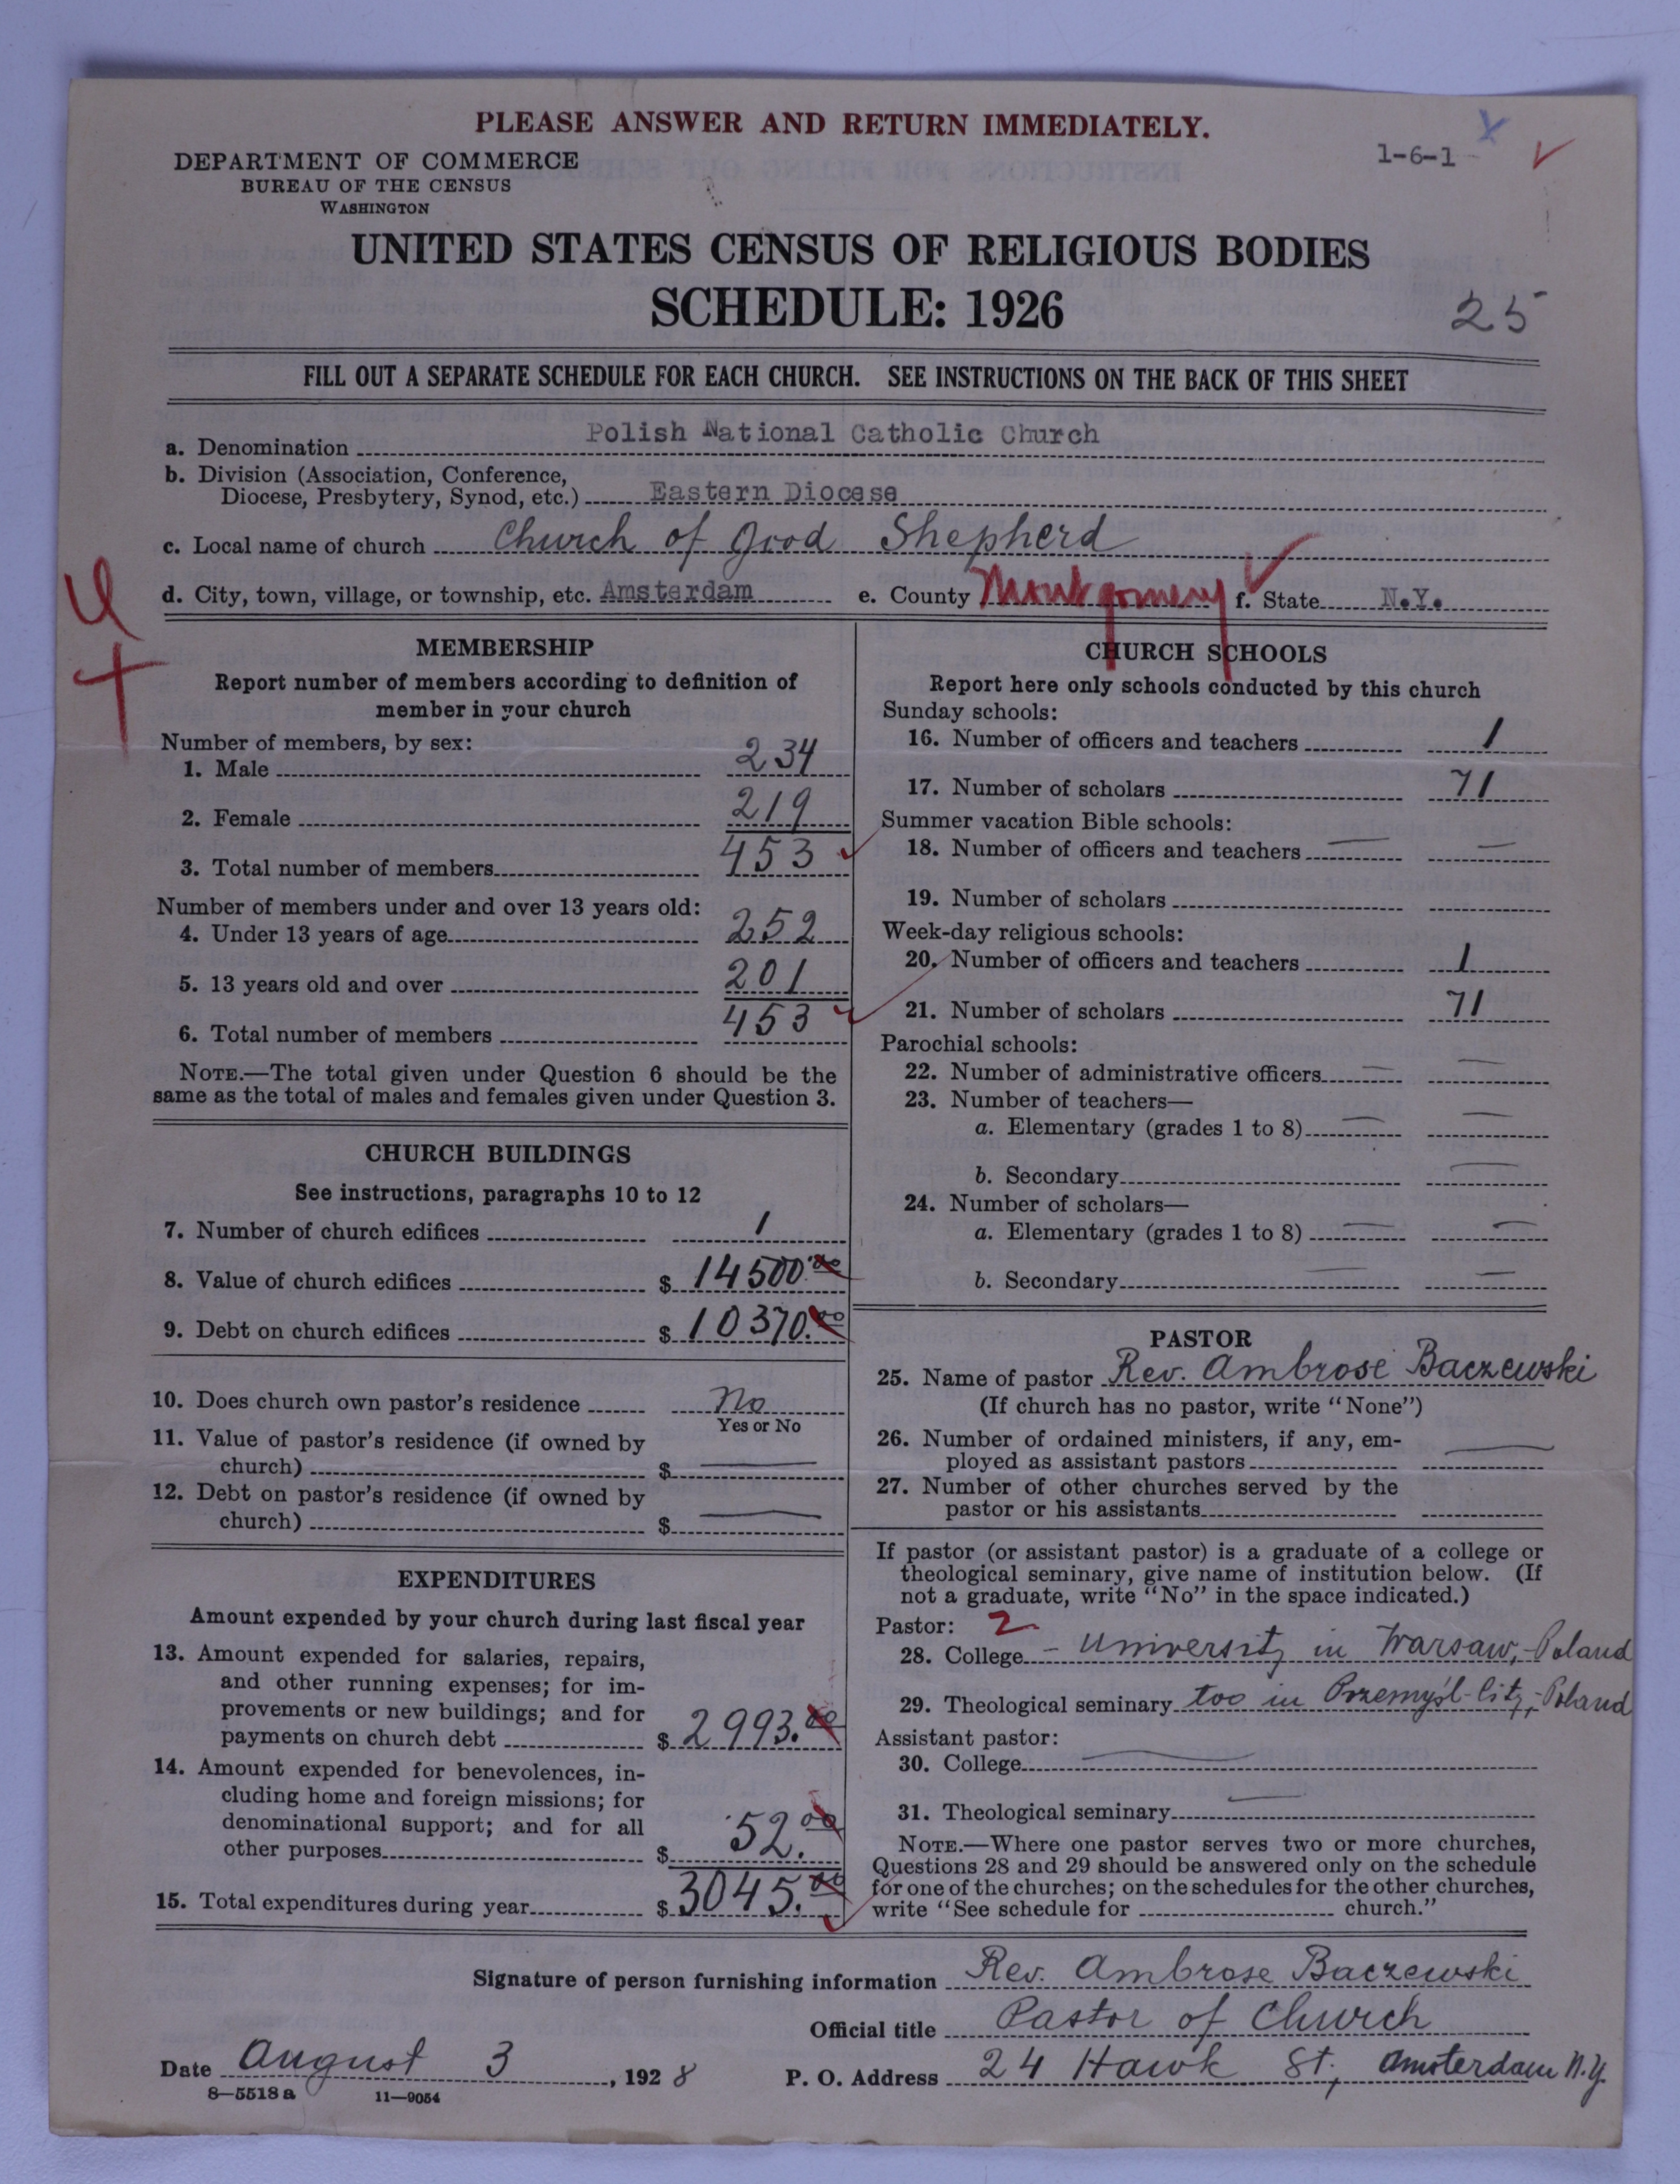 PLEASE ANSWER AND RETURN IMMEDIATELY.
1-6-1
DEPARTMENT OF COMMERCE
BUREAU OF THE CENSUS
WASHINGTON
UNITED STATES CENSUS OF RELIGIOUS BODIES
SCHEDULE: 1926
25
FILL OUT A SEPARATE SCHEDULE FOR EACH CHURCH. SEE INSTRUCTIONS ON THE BACK OF THIS SHEET
a. Denomination Polish National Catholic Church
b. Division (Association, Conference,
Diocese, Presbytery, Synod, etc.) Eastern Diocese
c. Local name of church Church of Good Shepherd
d. City, town, village, or township, etc. Amsterdam e. County Montgomery f. State N.Y.
MEMBERSHIP
Report number of members according to definition of
member in your church
Number of members, by sex:
1. Male 234
2. Female 219
3. Total number of members 453
Number of members under and over 13 years old:
4. Under 13 years of age 252
5. 13 years old and over 201
6. Total number of members 453
NOTE.—The total given under Question 6 should be the
same as the total of males and females given under Question 3.
CHURCH BUILDINGS
See instructions, paragraphs 10 to 12
7. Number of church edifices 1
8. Value of church edifices $ 14500.00
9. Debt on church edifices $ 10370.00
10. Does church own pastor's residence No
Yes or No
11. Value of pastor's residence (if owned by
church) $ —
12. Debt on pastor's residence (if owned by
church) $ —
EXPENDITURES
Amount expended by your church during last fiscal year
13. Amount expended for salaries, repairs,
and other running expenses; for im-
provements or new buildings; and for
payments on church debt $ 2993.00
14. Amount expended for benevolences, in-
cluding home and foreign missions; for
denominational support; and for all
other purposes $ 52.00
15. Total expenditures during year $ 3045.00
CHURCH SCHOOLS
Report here only schools conducted by this church
Sunday schools:
16. Number of officers and teachers 1
17. Number of scholars 71
Summer vacation Bible schools:
18. Number of officers and teachers — —
19. Number of scholars
Week-day religious schools:
20. Number of officers and teachers 1
21. Number of scholars 71
Parochial schools:
22. Number of administrative officers — —
23. Number of teachers—
a. Elementary (grades 1 to 8) — —
b. Secondary —
24. Number of scholars—
a. Elementary (grades 1 to 8) — —
b. Secondary — —
PASTOR
25. Name of pastor Rev. Ambrose Baczewski
(If church has no pastor, write "None")
26. Number of ordained ministers, if any, em-
ployed as assistant pastors —
27. Number of other churches served by the
pastor or his assistants
If pastor (or assistant pastor) is a graduate of a college or
theological seminary, give name of institution below. (If
not a graduate, write "No" in the space indicated.)
Pastor: 2
28. College – University in Warsaw, Poland
29. Theological seminary too in Przemyśl-City, Poland
Assistant pastor:
30. College —
31. Theological seminary —
NOTE.—Where one pastor serves two or more churches,
Questions 28 and 29 should be answered only on the schedule
for one of the churches; on the schedules for the other churches,
write "See schedule for church."
Signature of person furnishing information Rev. Ambrose Baczewski
Official title Pastor of Church
Date August 3, 1928
P. O. Address 24 Hawk St, Amsterdam N.Y.
8—5518 a 11—9054